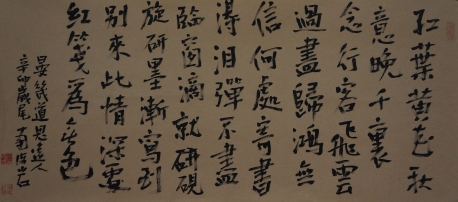 紅葉黃花秋
意晚千裏
念行客飛雲
過盡歸鴻無
信何處寄書
得泪彈不盡
臨窗滴就研硯
旋研墨漸寫到
別來此情深處
紅箋爲無色
晏幾道思遠人
辛卯歲尾